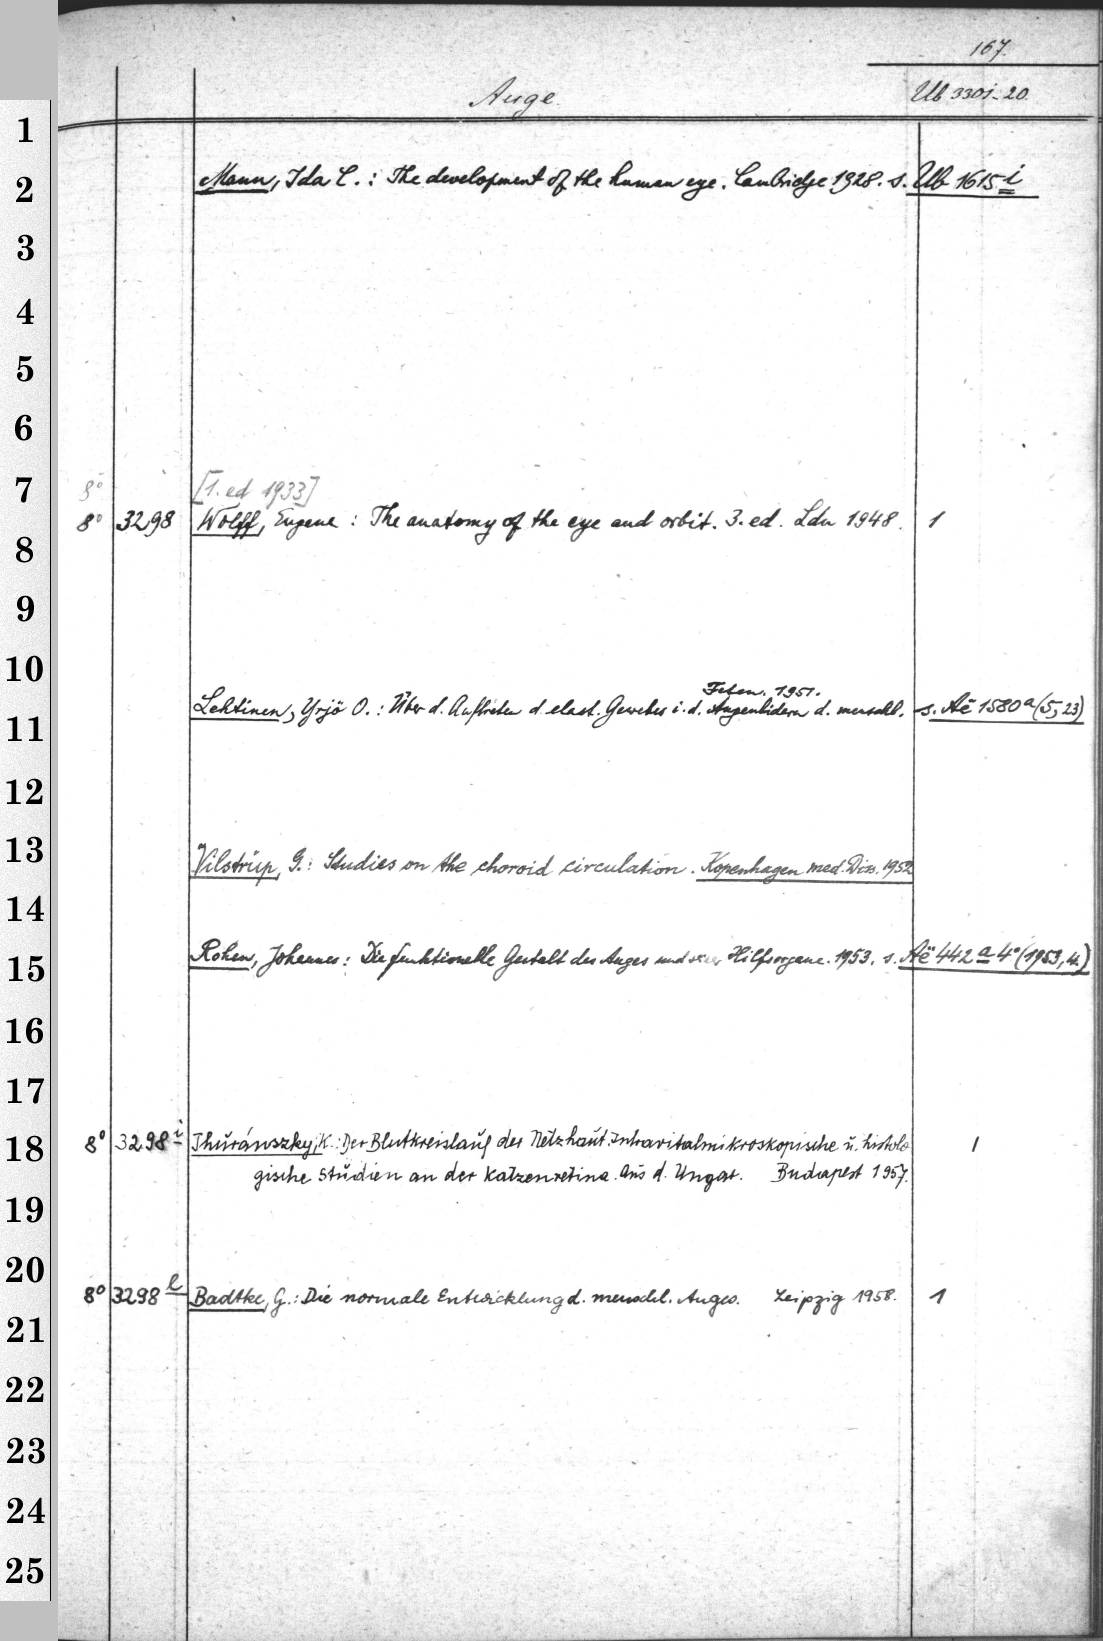 167.
Auge.
Ub 3301-20.
1
2
Mann, Ida C.: The development of the human eye. Cambridge 1928. s. Ub 1615 i
3
4
5
6
7
8°
[1. ed 1933]
8° 3298 Wolff, Eugene: The anatomy of the eye and orbit. 3. ed. Ldn 1948. 1
8
9
10
Feten. 1951.
Lehtinen, Yrjö O.: Über d. Auftreten d. elast. Gewebes i. d. Augenlidern d. menschl. s. Aë 1580 a (5, 23)
11
12
13
Vilstrup, G.: Studies on the choroid circulation. Kopenhagen med. Diss. 1952
14
Rohen, Johannes: Die funktionelle Gestalt des Auges und seiner Hilfsorgane. 1953. s. Aë 442 a 4° (1953, 4.)
15
16
17
18
8° 3298 i Thuránszky, K.: Der Blutkreislauf der Netzhaut. Intravitalmikroskopische u. histolo 1
gische Studien an der Katzenretina. Aus d. Ungar. Budapest 1957.
19
20
8° 3298 l Badtke, G.: Die normale Entwicklung d. menschl. Auges. Leipzig 1958. 1
21
22
23
24
25